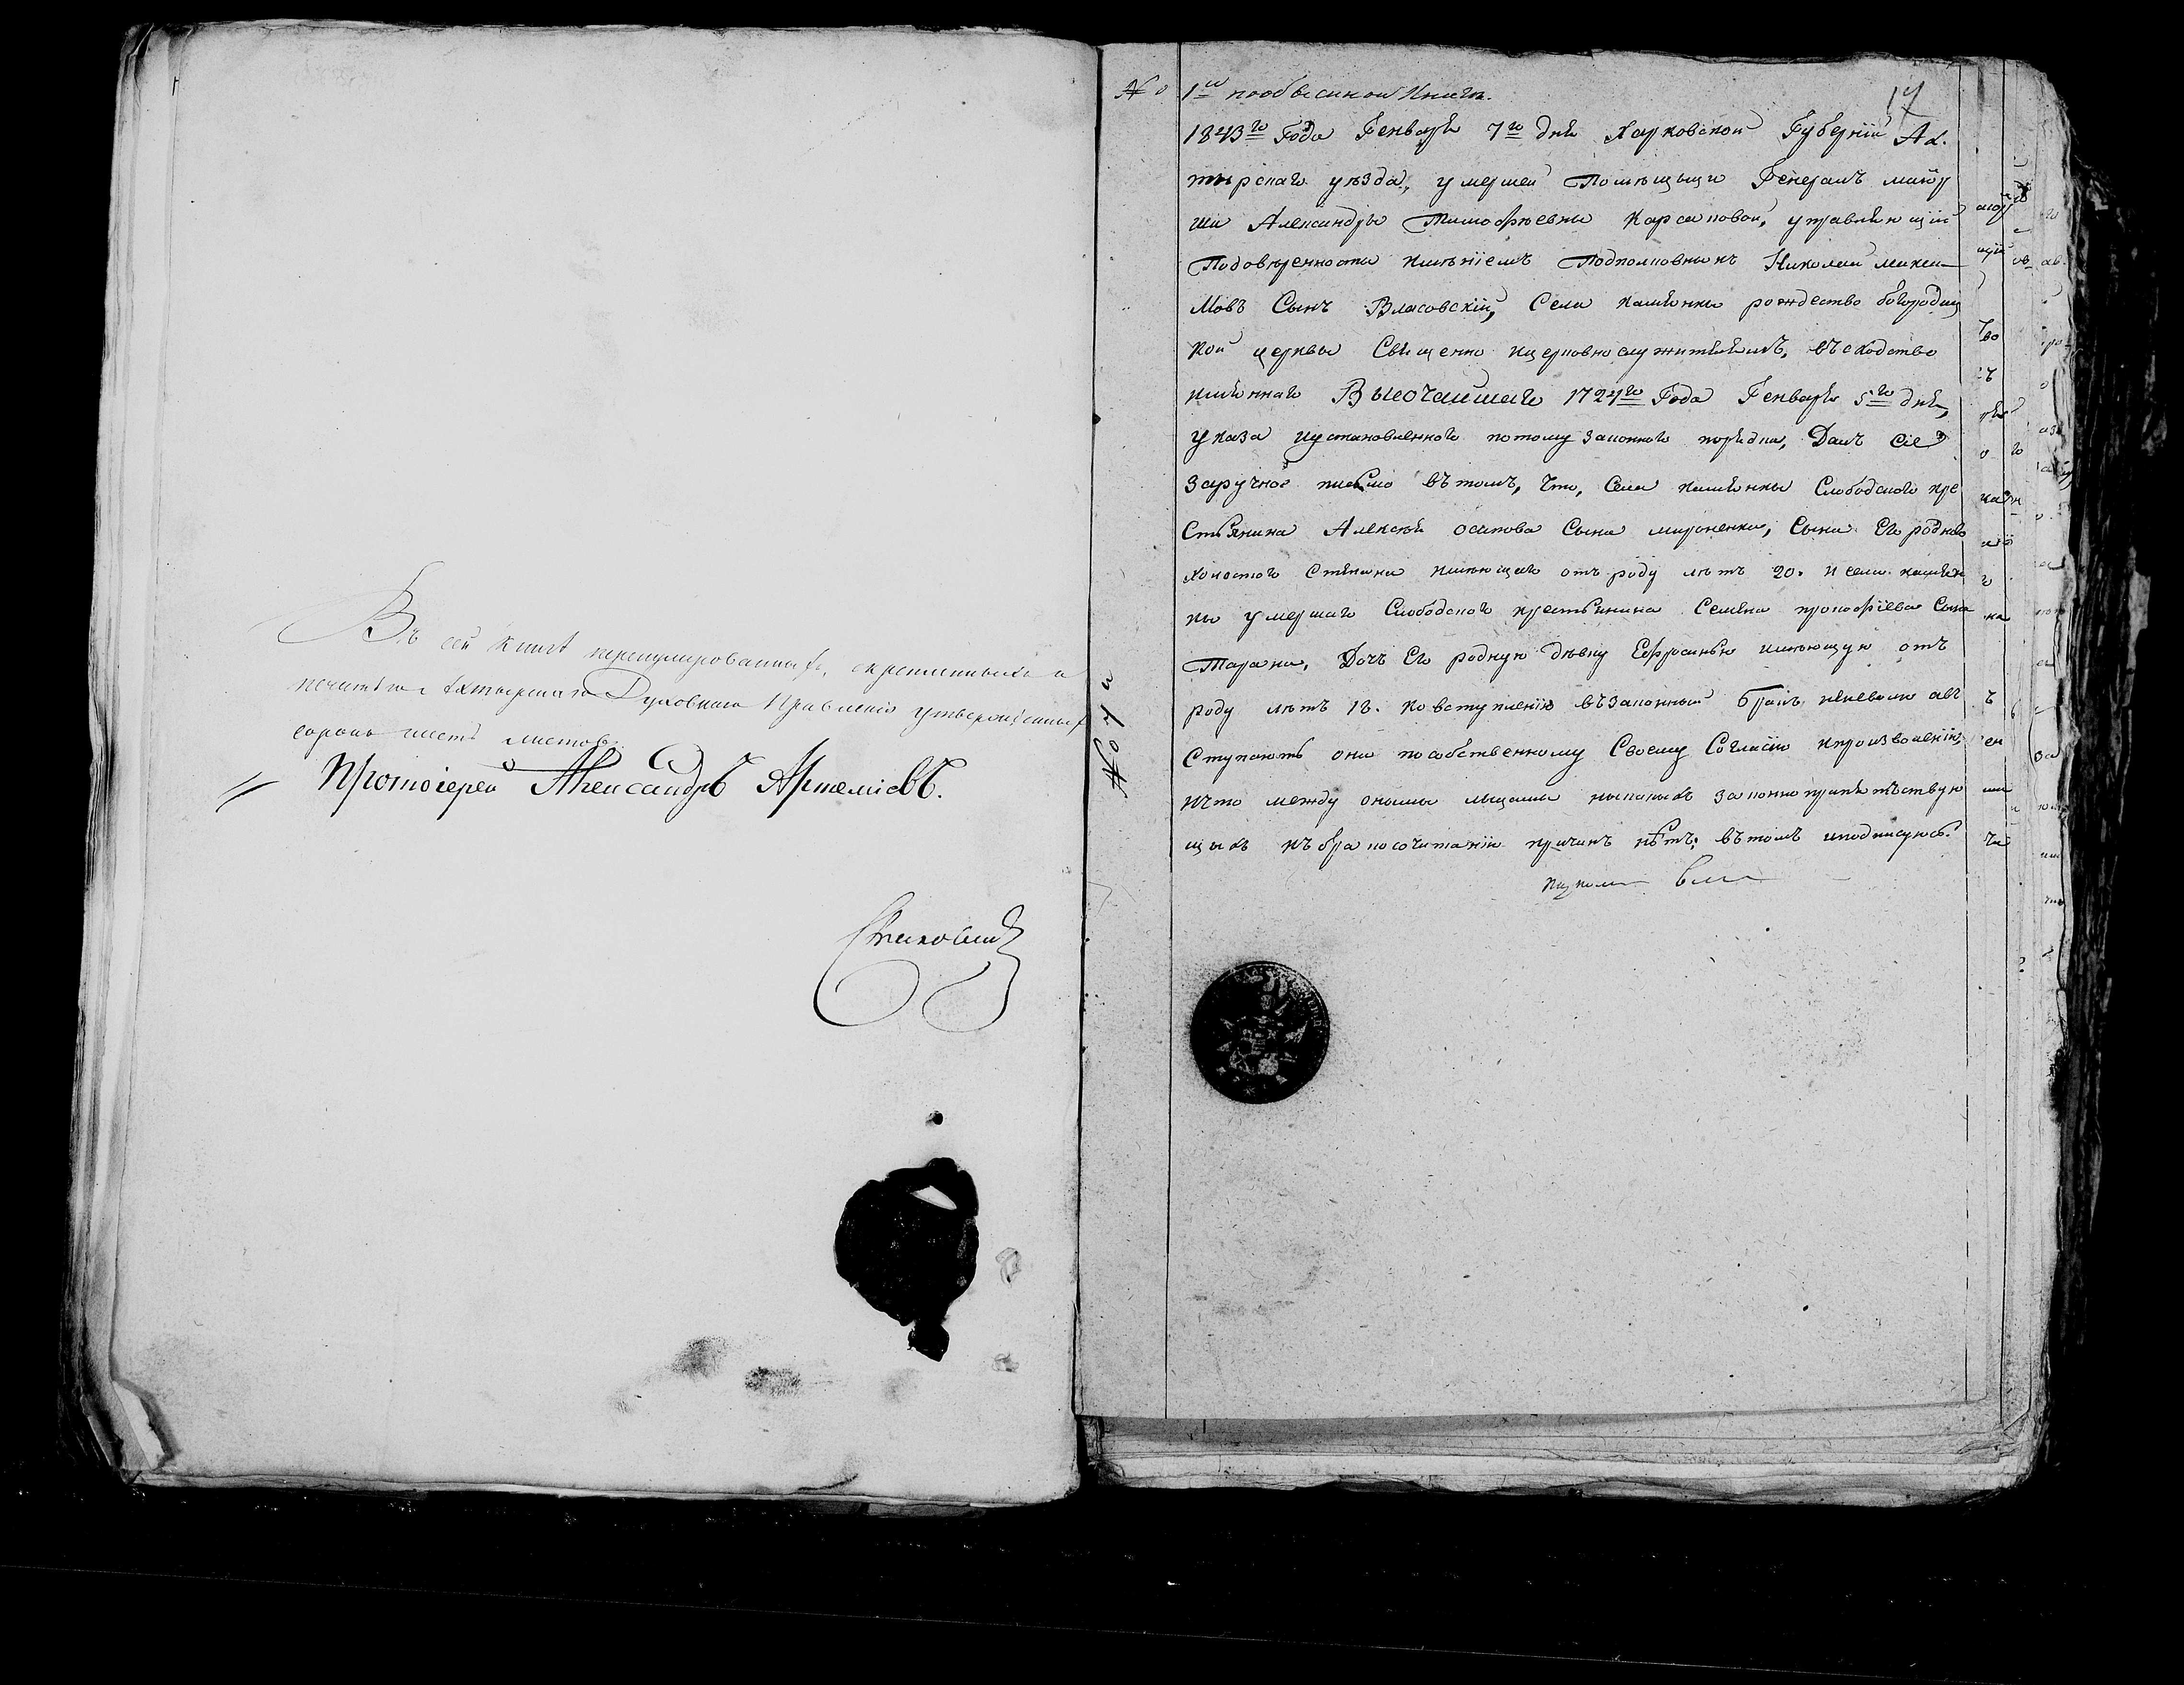 Въ сей книгѣ перенумерованныхъ, скрепленныхъ и
печатью Ахтырскаго Духовнаго Правленія утвержденныхъ
сорокъ шесть листовъ.
Протоіерей Александръ Артеміевъ.
№ 1й пообыскной Книги.
17
1843го Года Генваря 7го дня Харковской Губерніи Ах.
тырскаго уѣзда, умершей Помѣщыци Генералъ маіор
ши Александры Тимофѣевны Карсаковой, управляющій
Подовѣренности имѣніемъ Подполковникъ Николай
мовъ Сынъ Власовскій, Села Камянки рождество богородиц
кой церквы Священно ицерковнослужителямъ, въсходство
имяннаго Высочаишаго 1724го Года Генваря 5го дня,
указа иустановленного потому законного порядка, Далъ сіе
заручное письмо вътомъ, что, Села Камянки Слободского кре
стьянина Алексѣя осипова Сына мироненка, Сына Его родного
холостого Стѣпана имѣющаго отъ роду лѣтъ 20. и села камян
ки умершаго Слободского крестьянина Семена прокофіева Сына
Тарана, Дочъ Его родную дѣвку Ефросинью имѣющую отъ
роду лѣтъ 18. ко вступленію въ законный бракъ неневолю авъ
ступаютъ они пособственному Своему Согласію ипроизволенію,
ичто между оными лыцами ныкакыхъ законнопрепятъствую
щыхъ къбракосочитанію причинъ нѣтъ; вътомъ иподписуюсь.